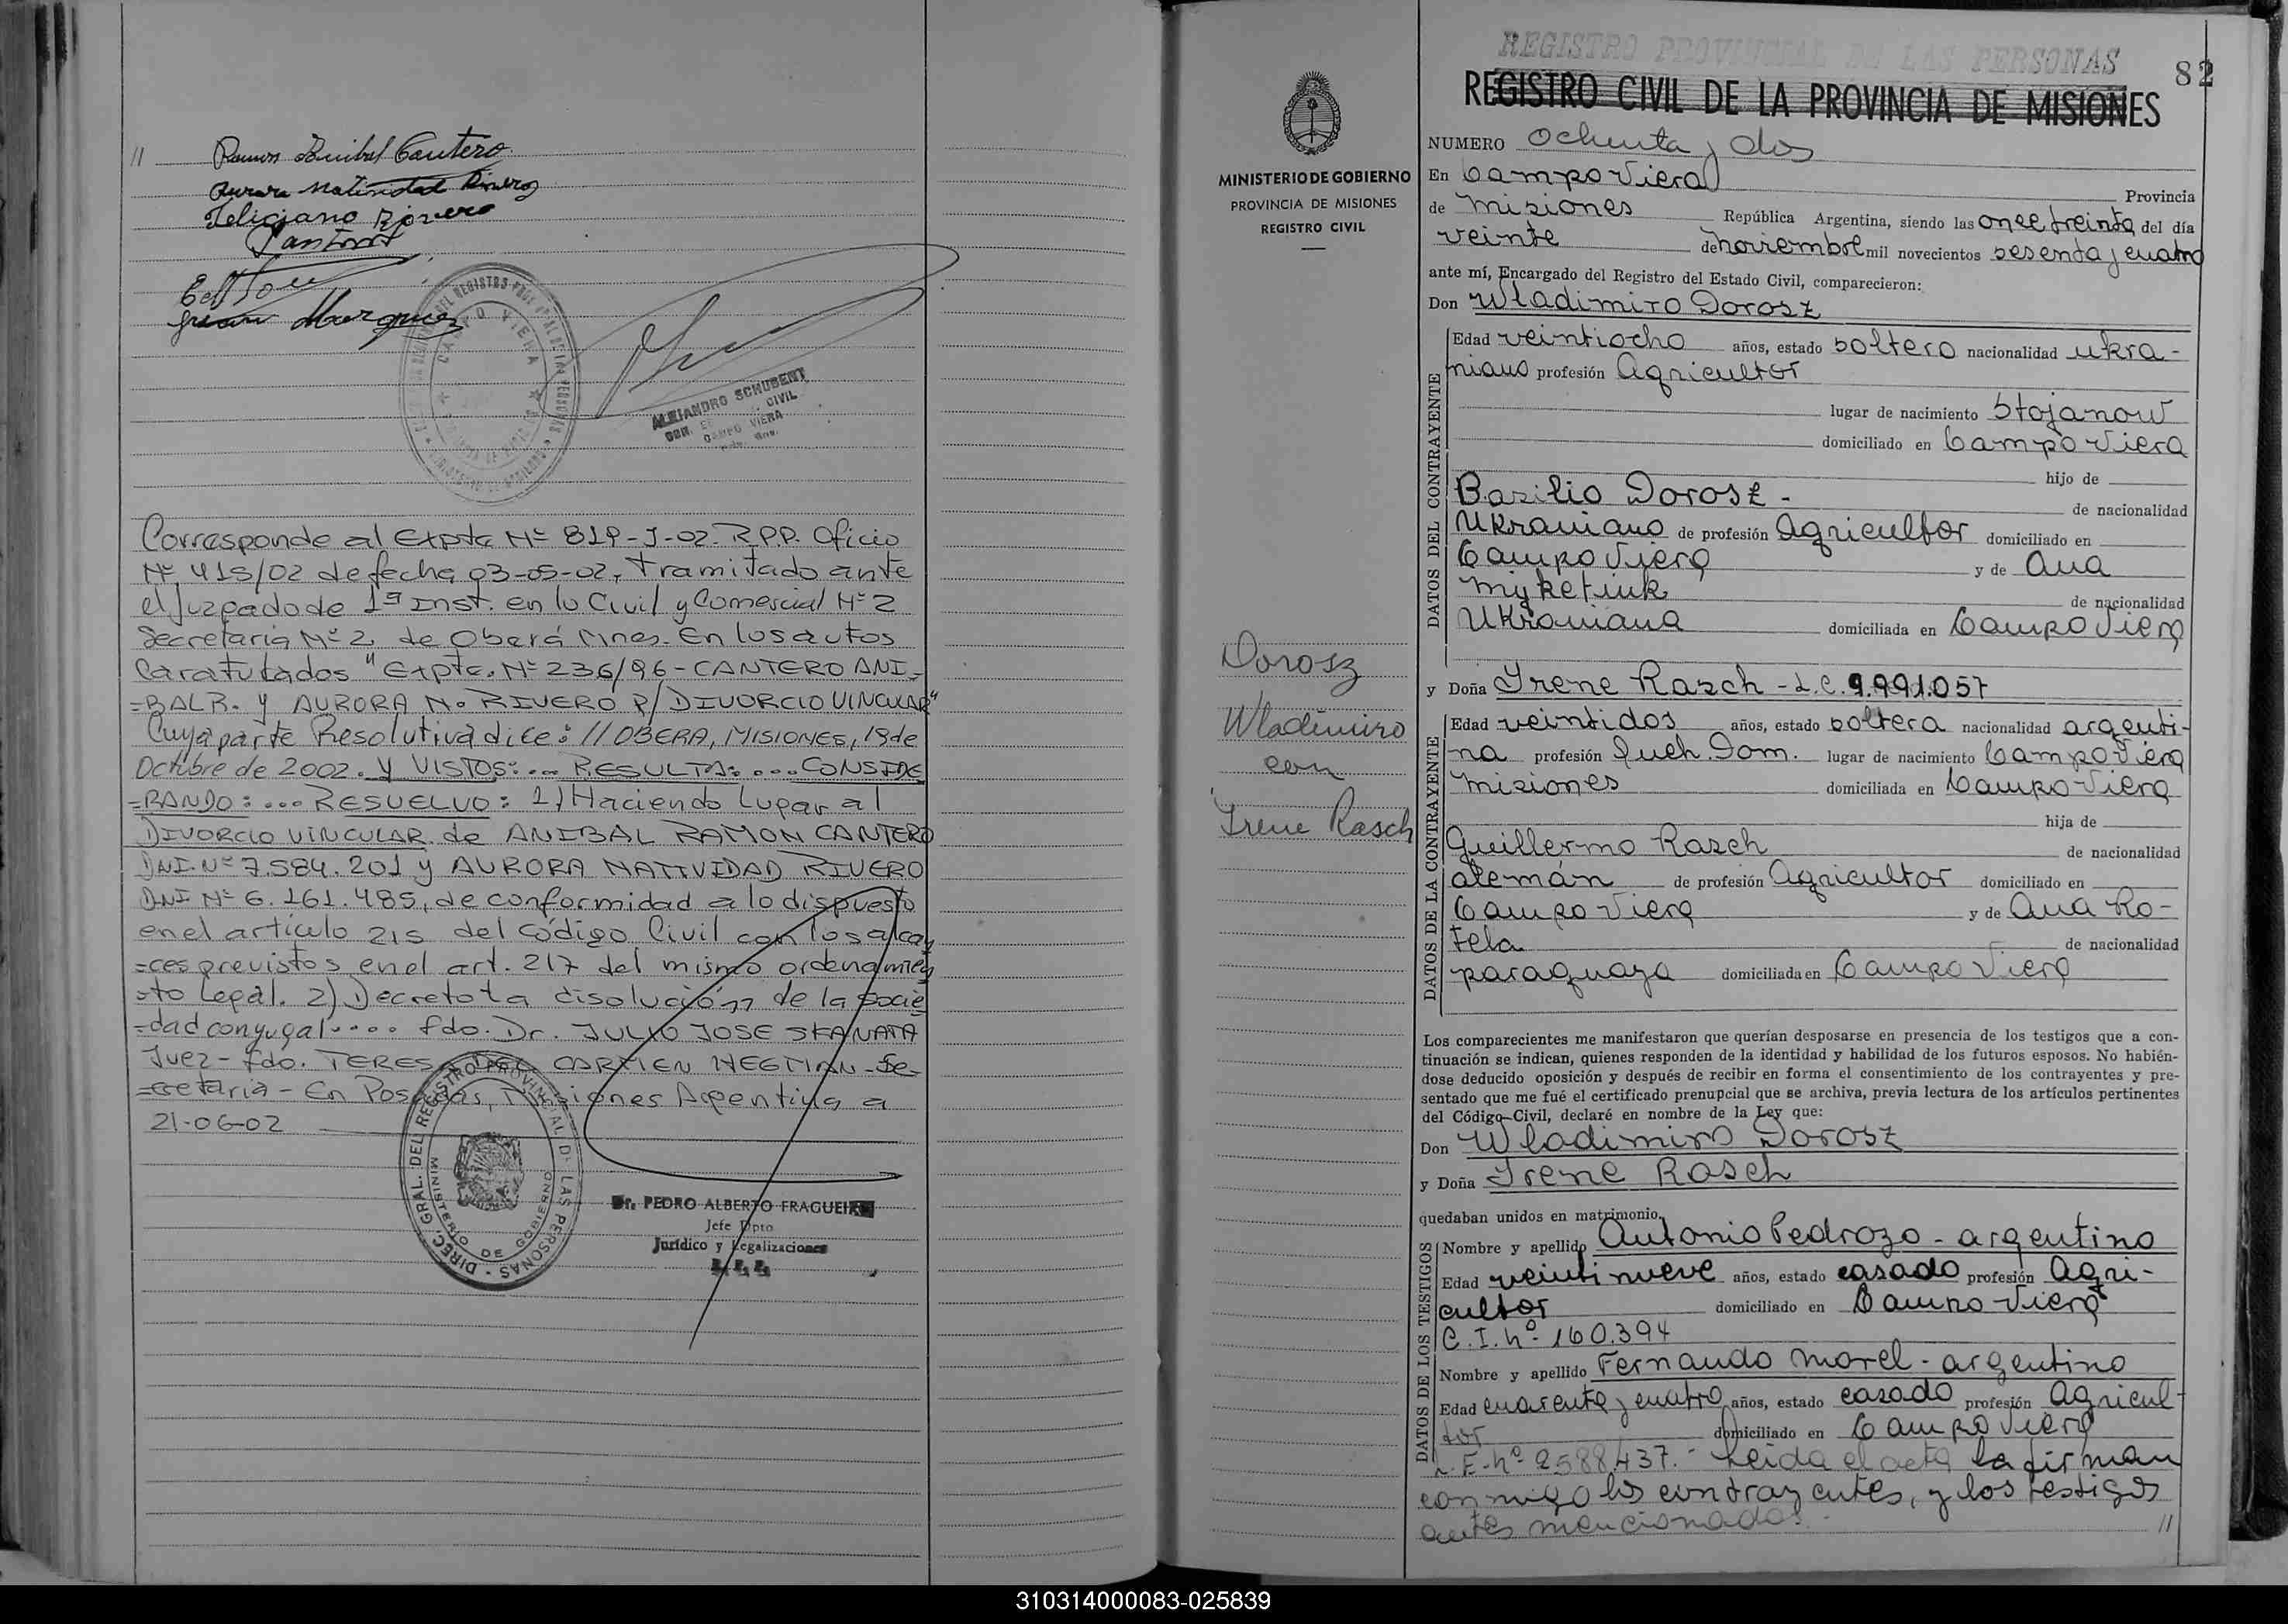 // Ramon Anibal Cantero
Aurora Natividad Rivero
Feliciano Rivero
Marquez
CAMPO VIERA
ALEJANDRO SCHUBERT
CIVIL
CAMPO VIERA
Corresponde al Expte Nº 819-J-02. R.P.P. Oficio
Nº 415/02 de fecha 03-05-02, tramitado ante
el Juzgado de 1ª Inst. en lo Civil y Comercial Nº 2
Secretaria Nº 2, de Oberá Mnes. En los autos
Caratulados "Expte. Nº 236/96 - CANTERO ANI-
=BAL R. Y AURORA N. RIVERO P/ DIVORCIO VINCULAR"
Cuya parte Resolutiva dice: // OBERA, MISIONES, 19 de
Octubre de 2002. Y VISTOS: ... RESULTA: ... CONSIDE
=RANDO: ... RESUELVO: 1) Haciendo lugar al
DIVORCIO VINCULAR de ANIBAL RAMON CANTERO
DNI. Nº 7.584.201 y AURORA NATIVIDAD RIVERO
DNI Nº 6.161.485, de conformidad a lo dispuesto
en el articulo 215 del código Civil con los alcan
=ces previstos en el art. 217 del mismo ordenamien
=to Legal. 2) Decreto la disolución de la socie
=dad conyugal.... fdo. Dr. JULIO JOSE SKANATA
Juez - fdo. TERESA DEL CARMEN HEGMAN - Se-
=cretaria - En Posadas, Misiones Argentina a
21-06-02
DIREC. GRAL. DEL REGISTRO PROVINCIAL DE LAS PERSONAS
MINISTERIO DE GOBIERNO
Dr. PEDRO ALBERTO FRAGUEIRO
Jefe Dpto
Jurídico y Legalizaciones
REGISTRO PROVINCIAL DE LAS PERSONAS
82
REGISTRO CIVIL DE LA PROVINCIA DE MISIONES
MINISTERIO DE GOBIERNO
PROVINCIA DE MISIONES
REGISTRO CIVIL
Dorosz
Wladimiro
con
Irene Rasch
NUMERO ochenta y dos
En Campo Viera Provincia
de Misiones República Argentina, siendo las once treinta del día
veinte de noviembre mil novecientos sesenta y cuatro
ante mí, Encargado del Registro del Estado Civil, comparecieron:
Don Wladimiro Dorosz
DATOS DEL CONTRAYENTE
Edad veintiocho años, estado soltero nacionalidad ukra-
niano profesión Agricultor
lugar de nacimiento Stojanow
domiciliado en Campo Viera
hijo de
Basilio Dorosz - de nacionalidad
Ukraniano de profesión Agricultor domiciliado en
Campo Viera y de Ana
Myketiuk de nacionalidad
Ukraniana domiciliada en Campo Viera
y Doña Irene Rasch - L.C. 9.991.057
DATOS DE LA CONTRAYENTE
Edad veintidos años, estado soltera nacionalidad argenti-
na profesión Queh. Dom. lugar de nacimiento Campo Viera
Misiones domiciliada en Campo Viera
hija de
Guillermo Rasch de nacionalidad
alemán de profesión Agricultor domiciliado en
Campo Viera y de Ana Ro-
tela de nacionalidad
paraguaya domiciliada en Campo Viera
Los comparecientes me manifestaron que querían desposarse en presencia de los testigos que a con-
tinuación se indican, quienes responden de la identidad y habilidad de los futuros esposos. No habién-
dose deducido oposición y después de recibir en forma el consentimiento de los contrayentes y pre-
sentado que me fué el certificado prenupcial que se archiva, previa lectura de los artículos pertinentes
del Código Civil, declaré en nombre de la Ley que:
Don Wladimiro Dorosz
y Doña Irene Rasch
quedaban unidos en matrimonio.
DATOS DE LOS TESTIGOS
Nombre y apellido Antonio Pedrozo - argentino
Edad veintinueve años, estado casado profesión Agri-
cultor domiciliado en Campo Viera
C.I. nº 160.394
Nombre y apellido Fernando Morel - argentino
Edad cuarenta y cuatro años, estado casado profesión Agricul-
tor domiciliado en Campo Viera
L.E. nº 2588437.- Leida el acta la firman
conmigo los contrayentes, y los testigos
antes mencionados.- //
310314000083-025839